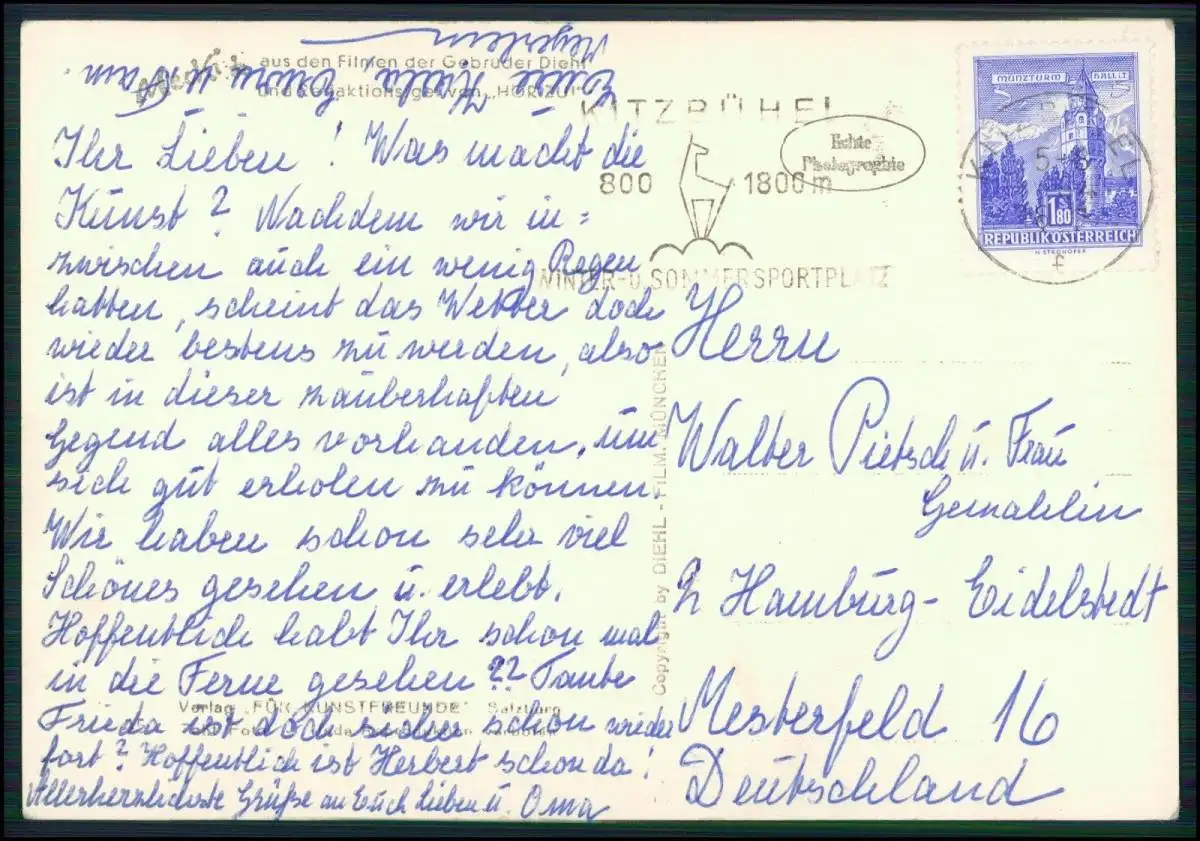 Mecki
aus den Filmen der Gebrüder Diehl
und Redaktionsigel von „HÖR ZU!"
Ihr Lieben! Was macht die
Kunst? Nachdem wir in=
zwischen auch ein wenig Regen
hatten, scheint das Wetter doch
wieder bestens zu werden, also
ist in dieser zauberhaften
Gegend alles vorhanden, um
sich gut erholen zu können
Wir haben schon sehr viel
Schönes gesehen u. erlebt.
Hoffentlich habt Ihr schon mal
in die Ferne gesehen?? Tante
Frieda ist doch sicher schon wieder
fort? Hoffentlich ist Herbert schon da!
Allerherzlichste Grüße an Euch Lieben u. Oma
Eure
Verlag „FÜR KUNSTFREUNDE" Salzburg
Copyright by DIEHL-FILM, MÜNCHEN
KITZBÜHEL
800 1800 m
WINTER-U. SOMMERSPORTPLATZ
Echte
Photographie
MÜNZTURM HALL I.T.
S
1.80
REPUBLIK ÖSTERREICH
KITZBÜHEL
f
Herrn
Walter Pietsch u. Frau
Gemahlin
2 Hamburg-Eidelstedt
Mesterfeld 16
Deutschland